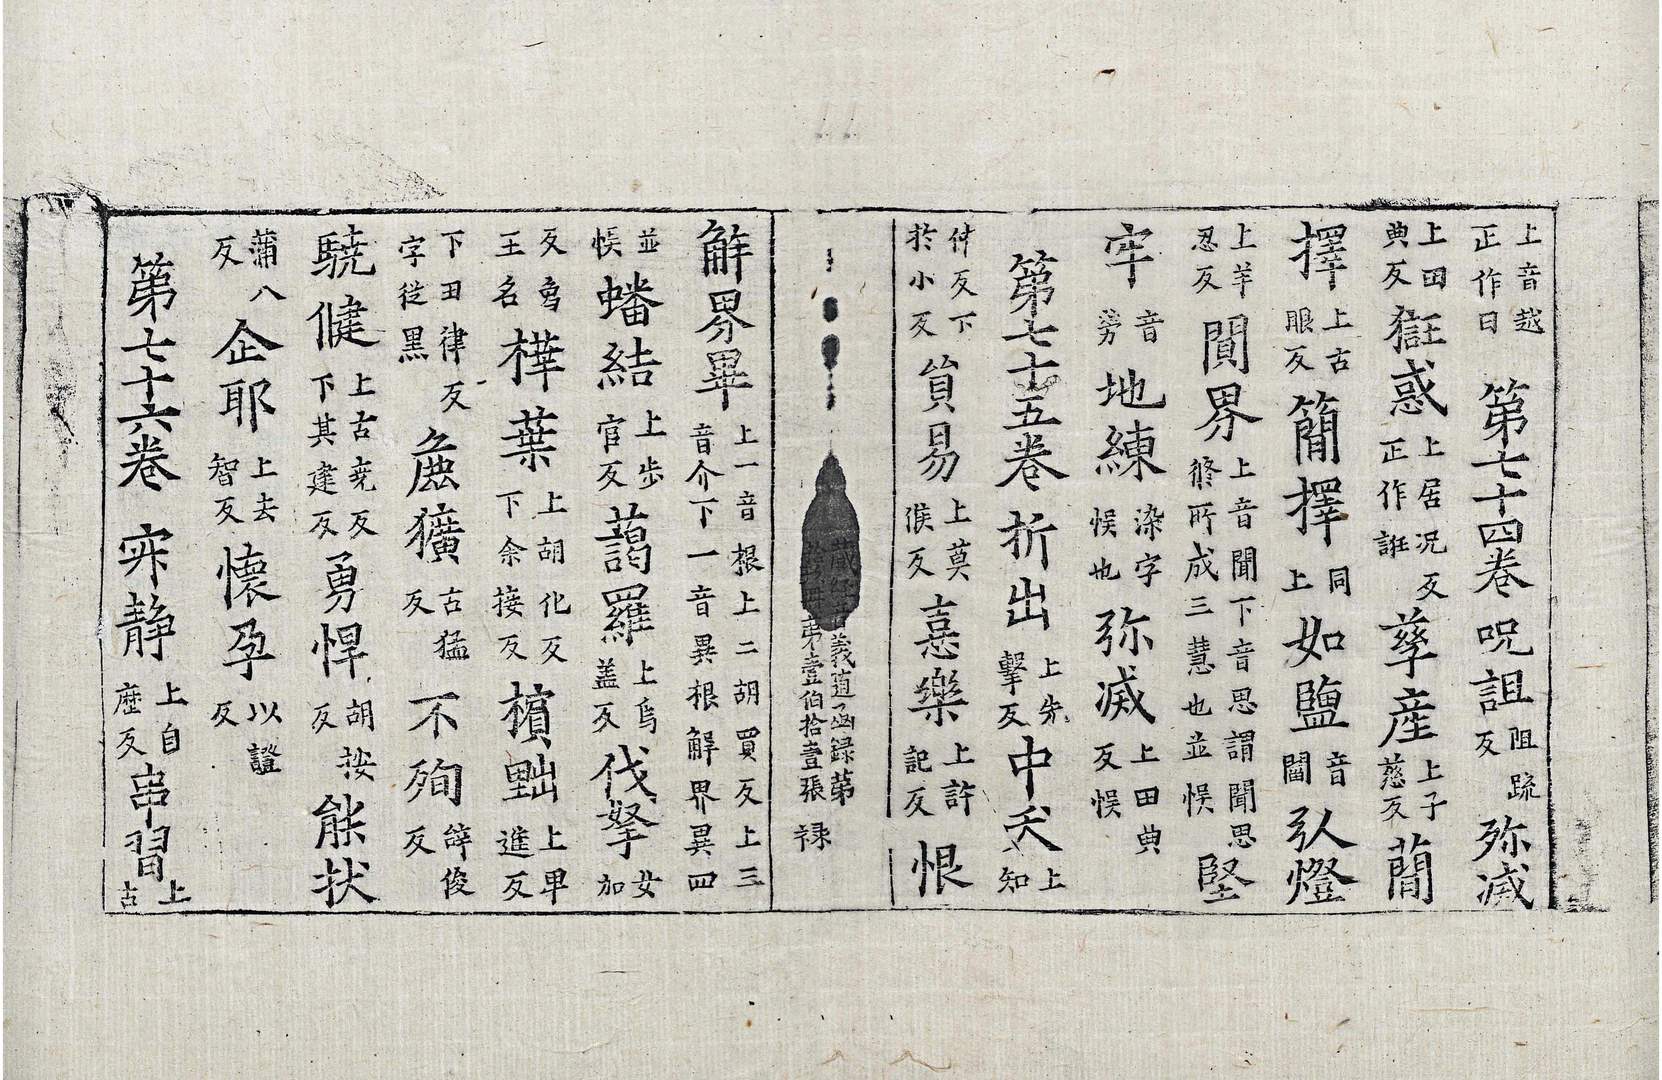 上音越正作日 第七十四卷 呪詛 阻疏反 弥滅
上田典反 𤞤惑 上居况反正作誑 孳産 上子慈反 蕑
擇 上古眼反 簡擇 同上 如鹽 音閻 燈
上羊忍反 聞界 上音聞下音思謂聞思修所成三慧也並悮 堅
牢 音勞 地練 染字悮也 弥滅 上田典反悮
第七十五卷 折出 上先擊反 中夭 上知
仲反下於小反 貿易 上莫候反 憙樂 上許記反 恨
藏經音義随函録第
第壹伯拾壹張 禄
解界畢 上一音根上二胡買反上三音介下一音異根解界異四
並悮 蟠結 上步官反 藹羅 上烏盖反 伐拏 女加
反為王名 樺葉 上胡化反下余接反 擯黜 上卑進反
下田律反字從黒 麁獷 古猛反 不殉 辝俊反
驍健 上古堯反下其建反 勇悍 胡按反 能狀
蒲八反 企耶 上去智反 懷孕 以證反
第七十六卷 寂静 上自歴反 串習 上古